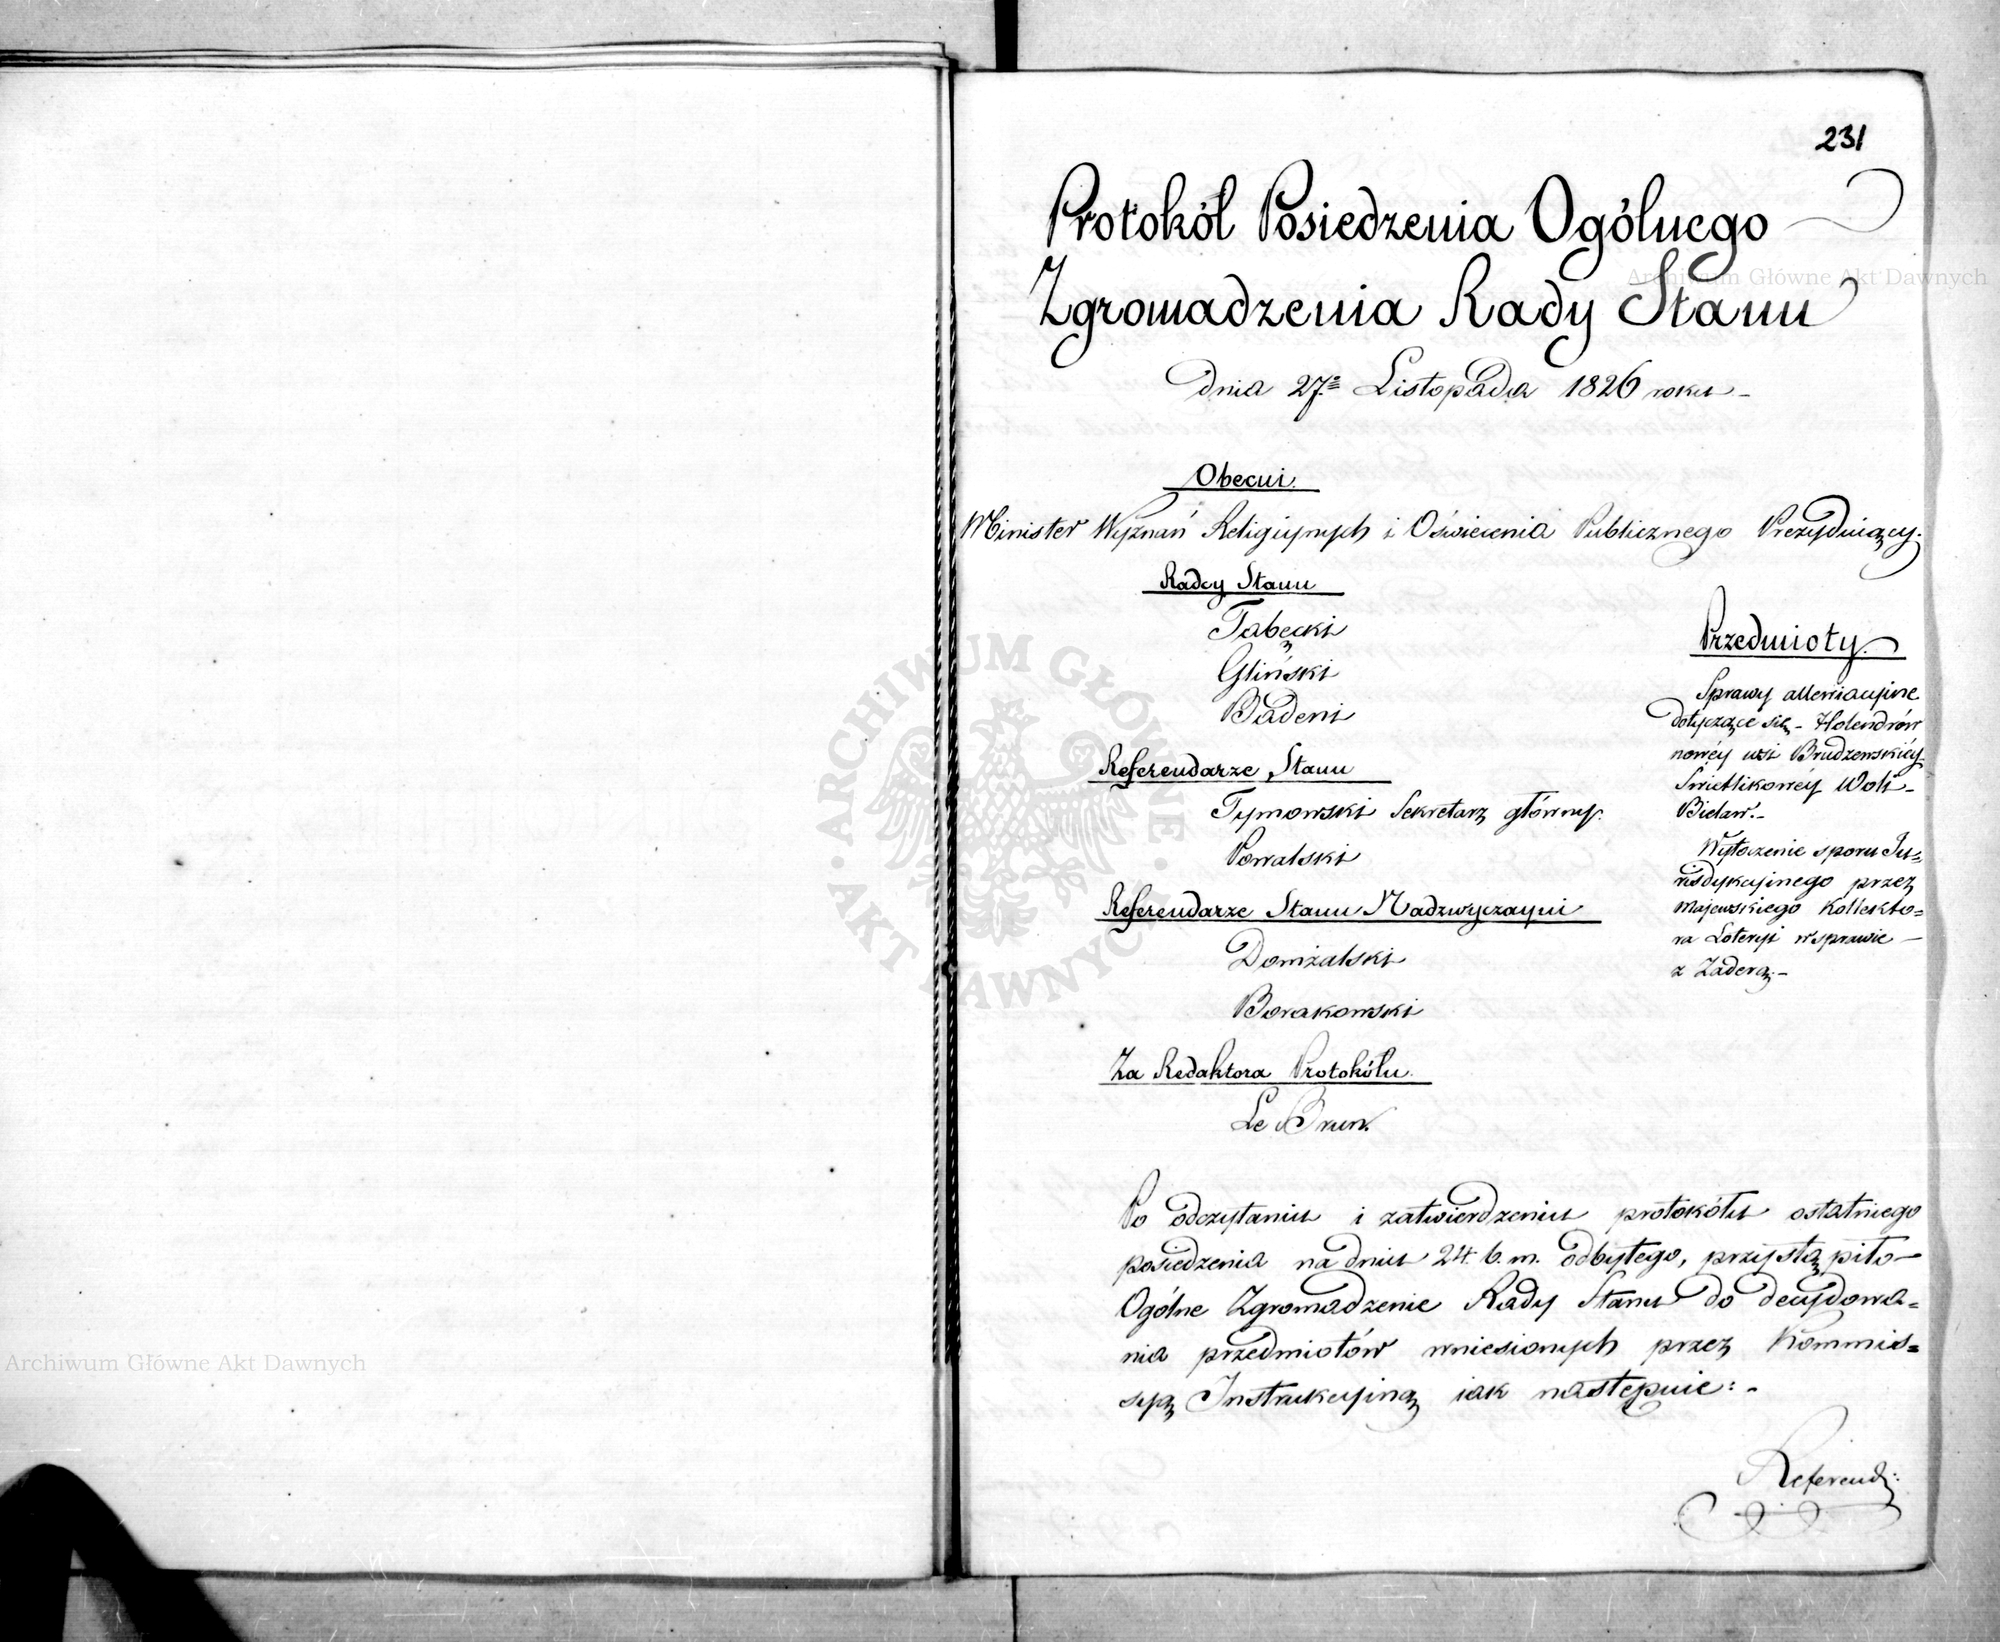 231
Protokół Posiedzenia Ogólnego
Zgromadzenia Rady Stanu
dnia 27º Listopada 1826 roku -
Obecni.
Minister Wyznań Religiynych i Oświecenia Publicznego Prezyduiący.
Radcy Stanu
Tabęcki
Gliński
Badeni
Referendarze Stanu
Tymowski Sekretarz główny.
Powalski
Referendarze Stanu Nadzwyczayni
Domżalski
Borakowski
Za Redaktora Protokółu.
Le Brun.
Przedmioty.
Sprawy
dotyczące się - Holendrów
nowéy wsi Brudzewskiéy
Świetlikowéy Woli -
Bielaw. -
Wytoczenie sporu Ju=
risdykcyinego przez
Majewskiego Kollekto=
ra Loteryi w sprawie -
z Zaderą. -
Po odczytaniu i zatwierdzeniu protokółu ostatniego
posiedzenia na dniu 24. b. m. odbytego, przystąpiło -
Ogólne Zgromadzenie Rady Stanu do decydowa=
nia przedmiotów wniesionych przez Kommis=
syą Instrukcyiną iak następuie: -
Referend:
Archiwum Główne Akt Dawnych
Archiwum Główne Akt Dawnych
ARCHIWUM GŁÓWNE · AKT DAWNYCH ·